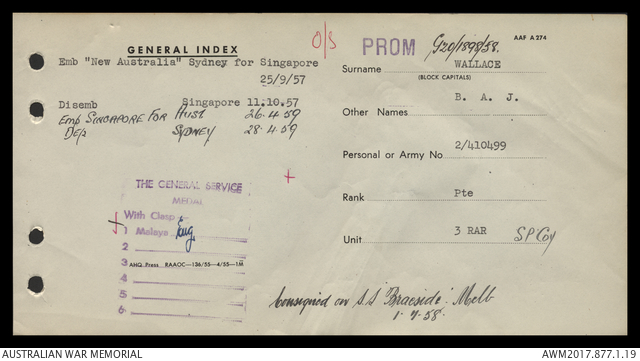 GENERAL INDEX
O/S
PROM
G20/1898/58.
AAF A 274
Emb "New Australia" Sydney for Singapore
25/9/57
Surname WALLACE
(BLOCK CAPITALS)
Disemb Singapore 11.10.57
Emb SINGAPORE FOR AUST 26.4.59
Dep SYDNEY 28.4.59
Other Names B. A. J.
Personal or Army No 2/410499
Rank Pte
Unit 3 RAR SP Coy
THE GENERAL SERVICE
MEDAL
With Clasp
1 Malaya
2
3
AHQ Press RAAOC—136/55—4/55—1M
4
5
6
Consigned on S.S "Braeside" Melb
1.7.58.
AUSTRALIAN WAR MEMORIAL
AWM2017.877.1.19